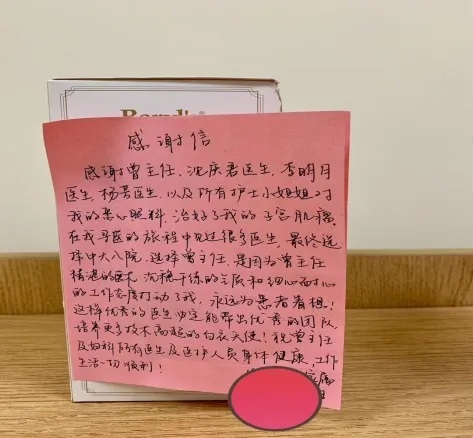 感谢信
感谢曾主任、沈庆君医生、李明月
医生、杨芳医生、以及所有护士小姐姐对
我的悉心照料,治好了我的子宫肌瘤。
在我寻医的旅程中见过很多医生,最终选
择中大八院,选择曾主任,是因为曾主任
精湛的医术、沉稳干练的气质和细心耐心
的工作态度打动了我,永远为患者着想!
这样优秀的医生必定能带出优秀的团队,
培养更多技术高超的白衣天使!祝曾主任
及妇科所有医生及医护人员身体健康、工作
生活一切顺利!